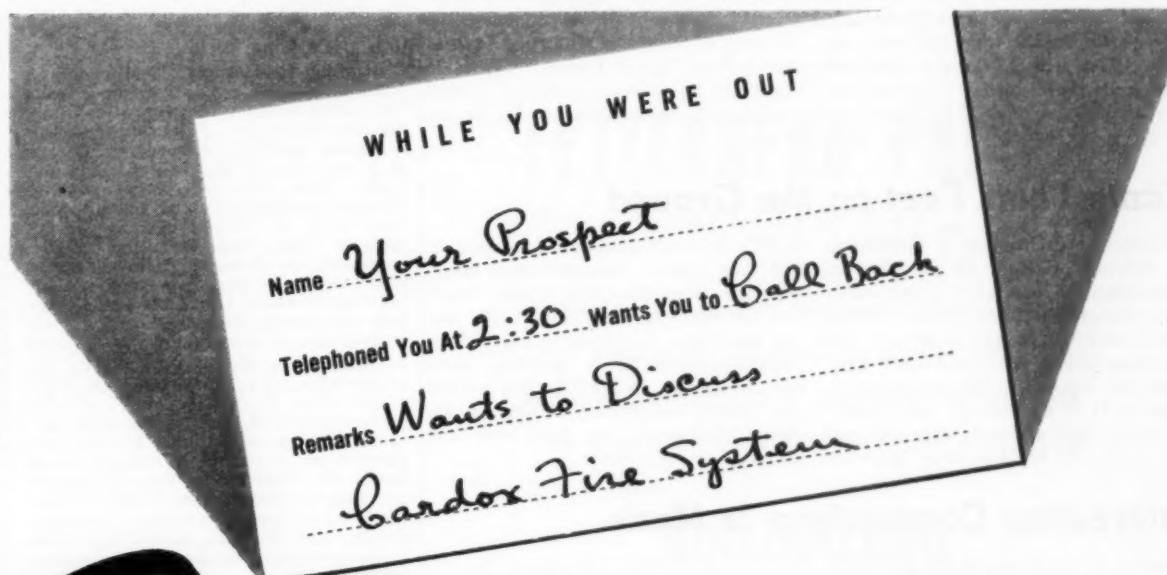 WHILE YOU WERE OUT
Name Your Prospect
Telephoned You At 2:30 Wants You to Call Back
Remarks Wants to Discuss
Cardox Fire System